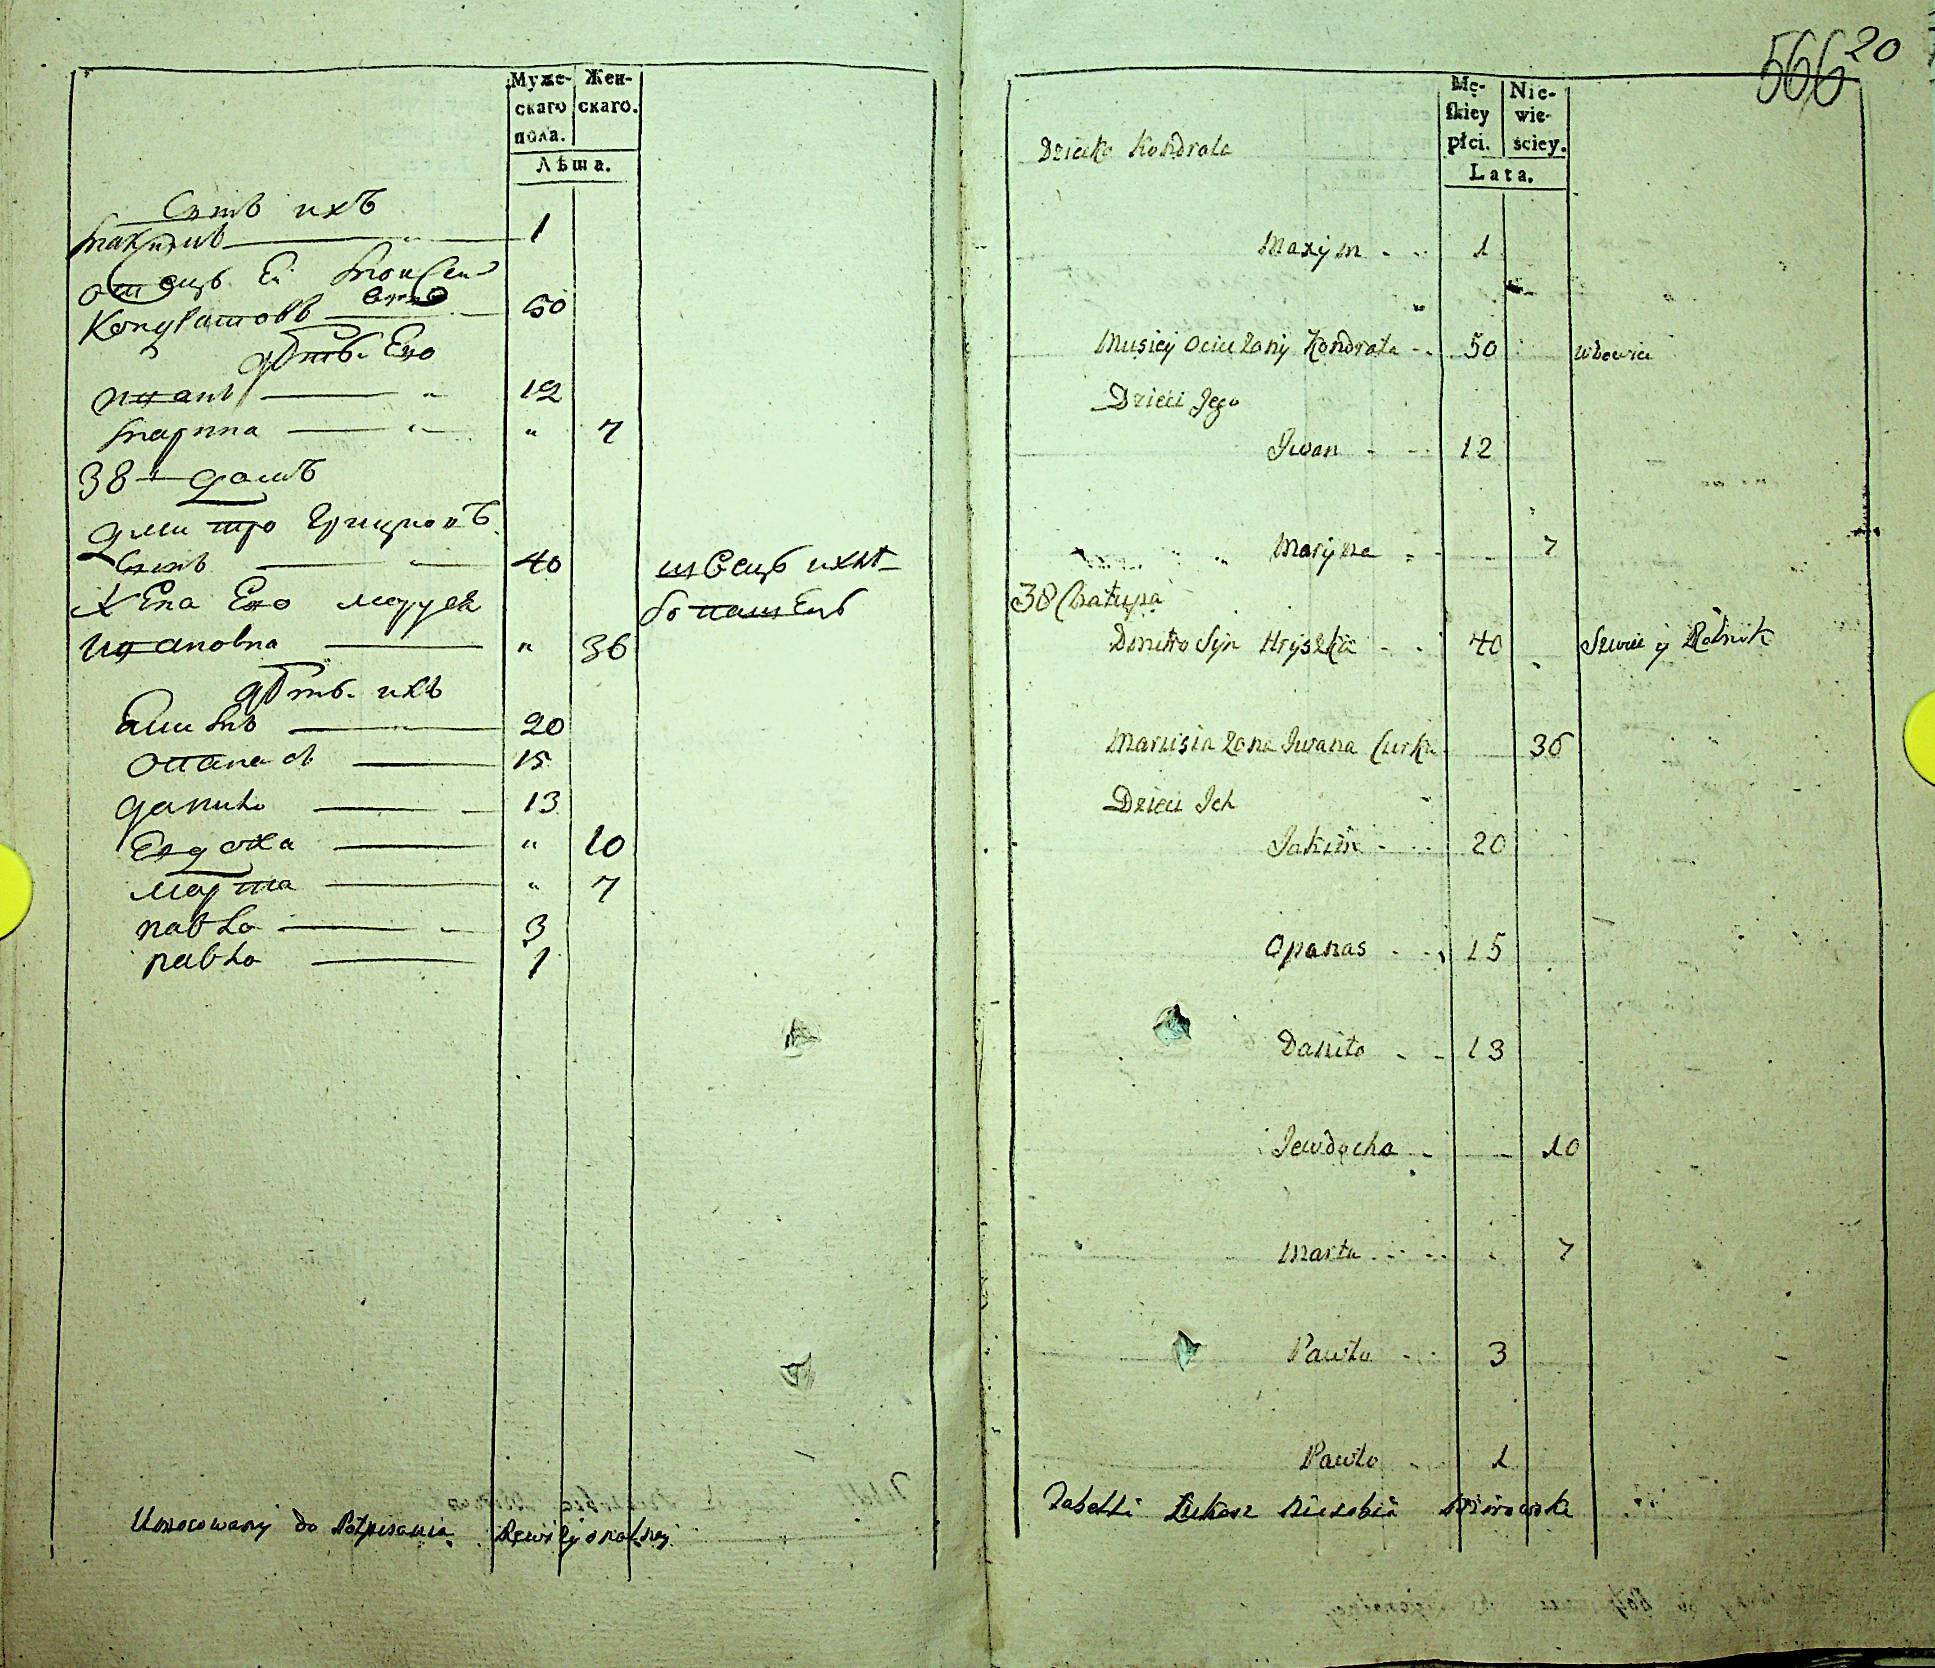 Муже-
скаго
пола.
Жен-
скаго.
Лѣта.
Сынъ ихъ
Максимъ 1
отецъ Еі Моисей
Кондратовъ сынъ 50
дѣти Его
иванъ " 12
марина " " 7
38 домъ
дмитро Грицковъ
Сынъ 40 швецъ ихлѣ-
бопашецъ
Жена Его маруся
ивановна " 36
дѣти ихъ
Якимъ 20
Опанасъ 15
данило 13
Евдоха " 10
марта " 7
павло 3
павло 1
Umocowany do Potpisania Rewizyonalney
566 20
Mę-
skiey
płci.
Nie-
wie-
ściey.
Lata.
Dziecko Kondrata
Maxym 1
Musiey Ociec Zony Kondrata 50 wdowiec
Dzieci Jego
Iwan 12
Maryna 7
38 Chałupa
Dmitro Syn Hryszka 40 Szwiec y Rolnik
Marusia Zona Iwana Curka 36
Dzieci Ich
Jakim 20
Opanas 15
Daniło 13
Jewdocha 10
Marta 7
Pawło 3
Pawło 1
Tabelli Łukasz